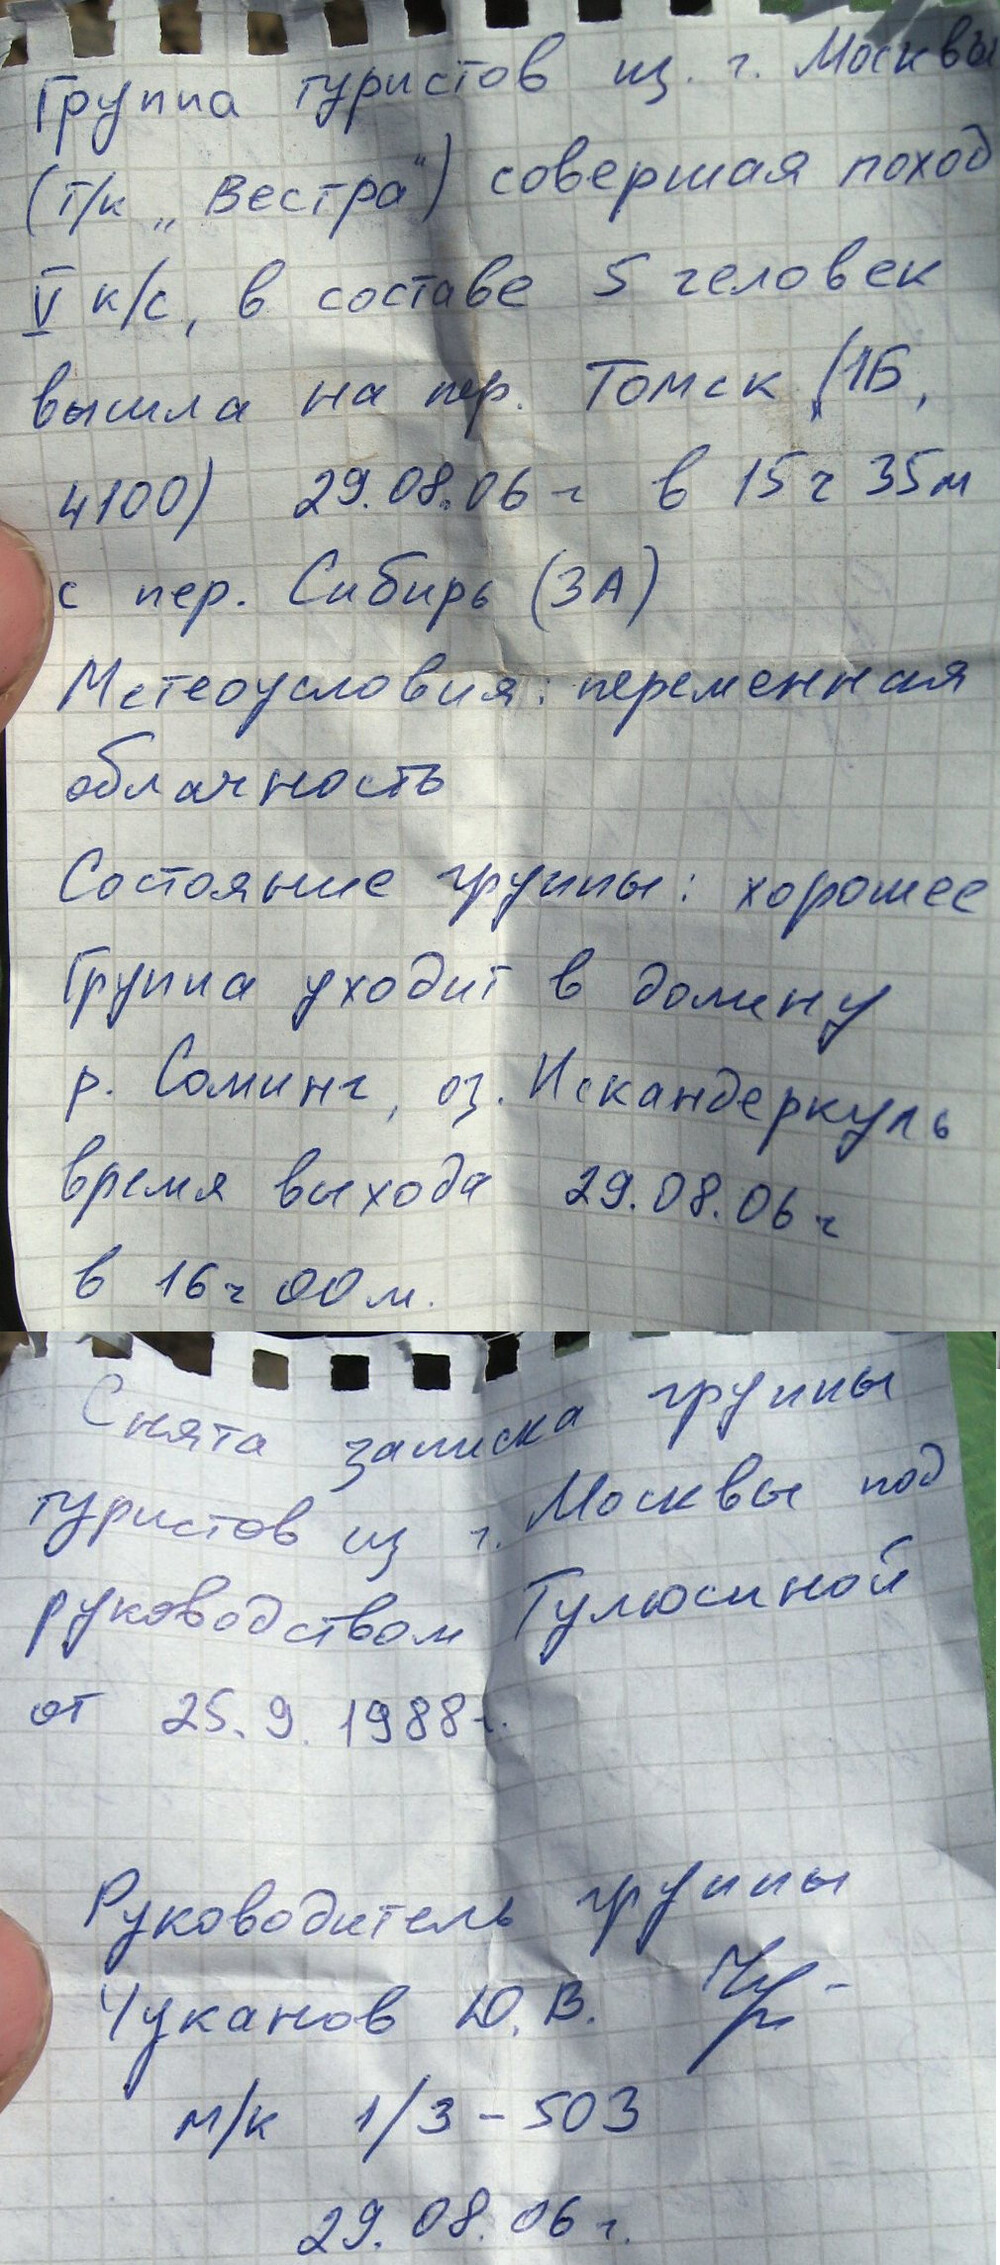 Группа туристов из г. Москвы
(т/к „Вестра") совершая поход
V к/с, в составе 5 человек
вышла на пер. Томск (1Б,
4100) 29.08.06 г в 15 ч 35м
с пер. Сибирь (3А)
Метеоусловия: переменная
облачность
Состояние группы: хорошее
Группа уходит в долину
р. Соминг, оз. Искандеркуль
время выхода 29.08.06 г
в 16 ч 00 м.
Снята записка группы
туристов из г. Москвы под
руководством Тулюсиной
от 25.9.1988 г.
Руководитель группы
Чуканов Ю.В.
м/к 1/3-503
29.08.06 г.